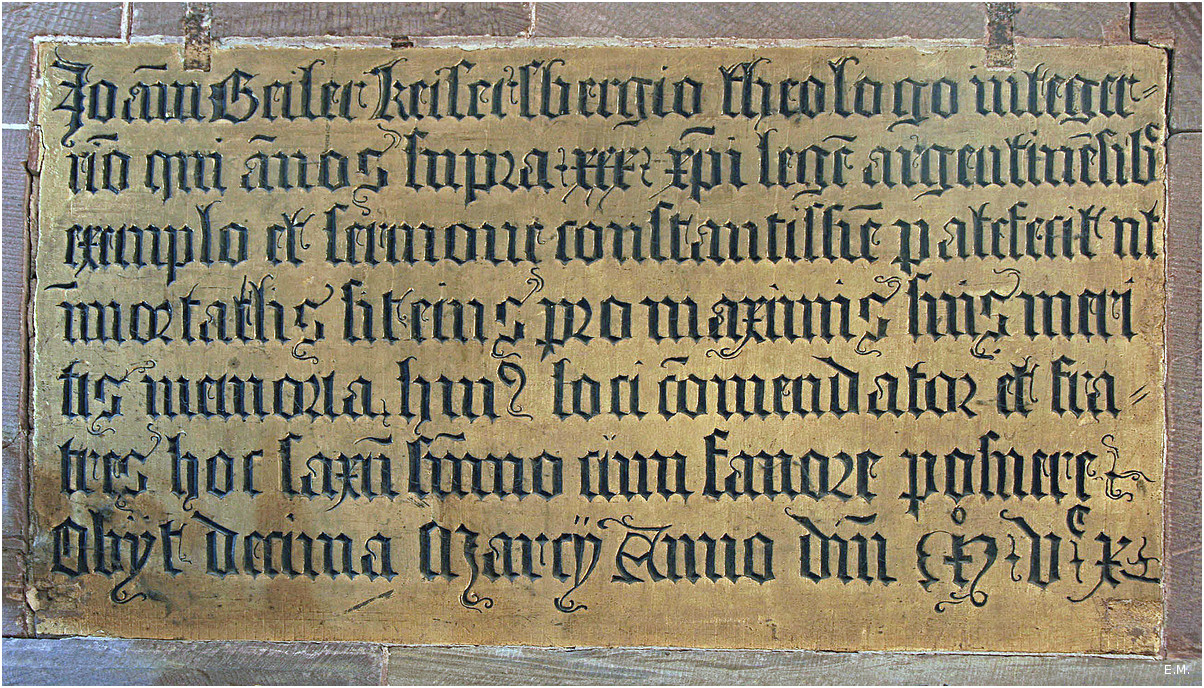 Joāni Geiler keisersbergio theologo integer=
rīo qui ānos supra xxx xp̄i legē argentinēsibꝰ
exemplo et sermone constantissīe patefecit ut
īmortalis sit eius pro maximis suis meri
tis memoria, huiꝰ loci cōmendator et fra=
tres hoc saxū sūmo cum favore posuere
Obijt decima Marcij Anno dn̄i Mº Vᶜ X
E.M.